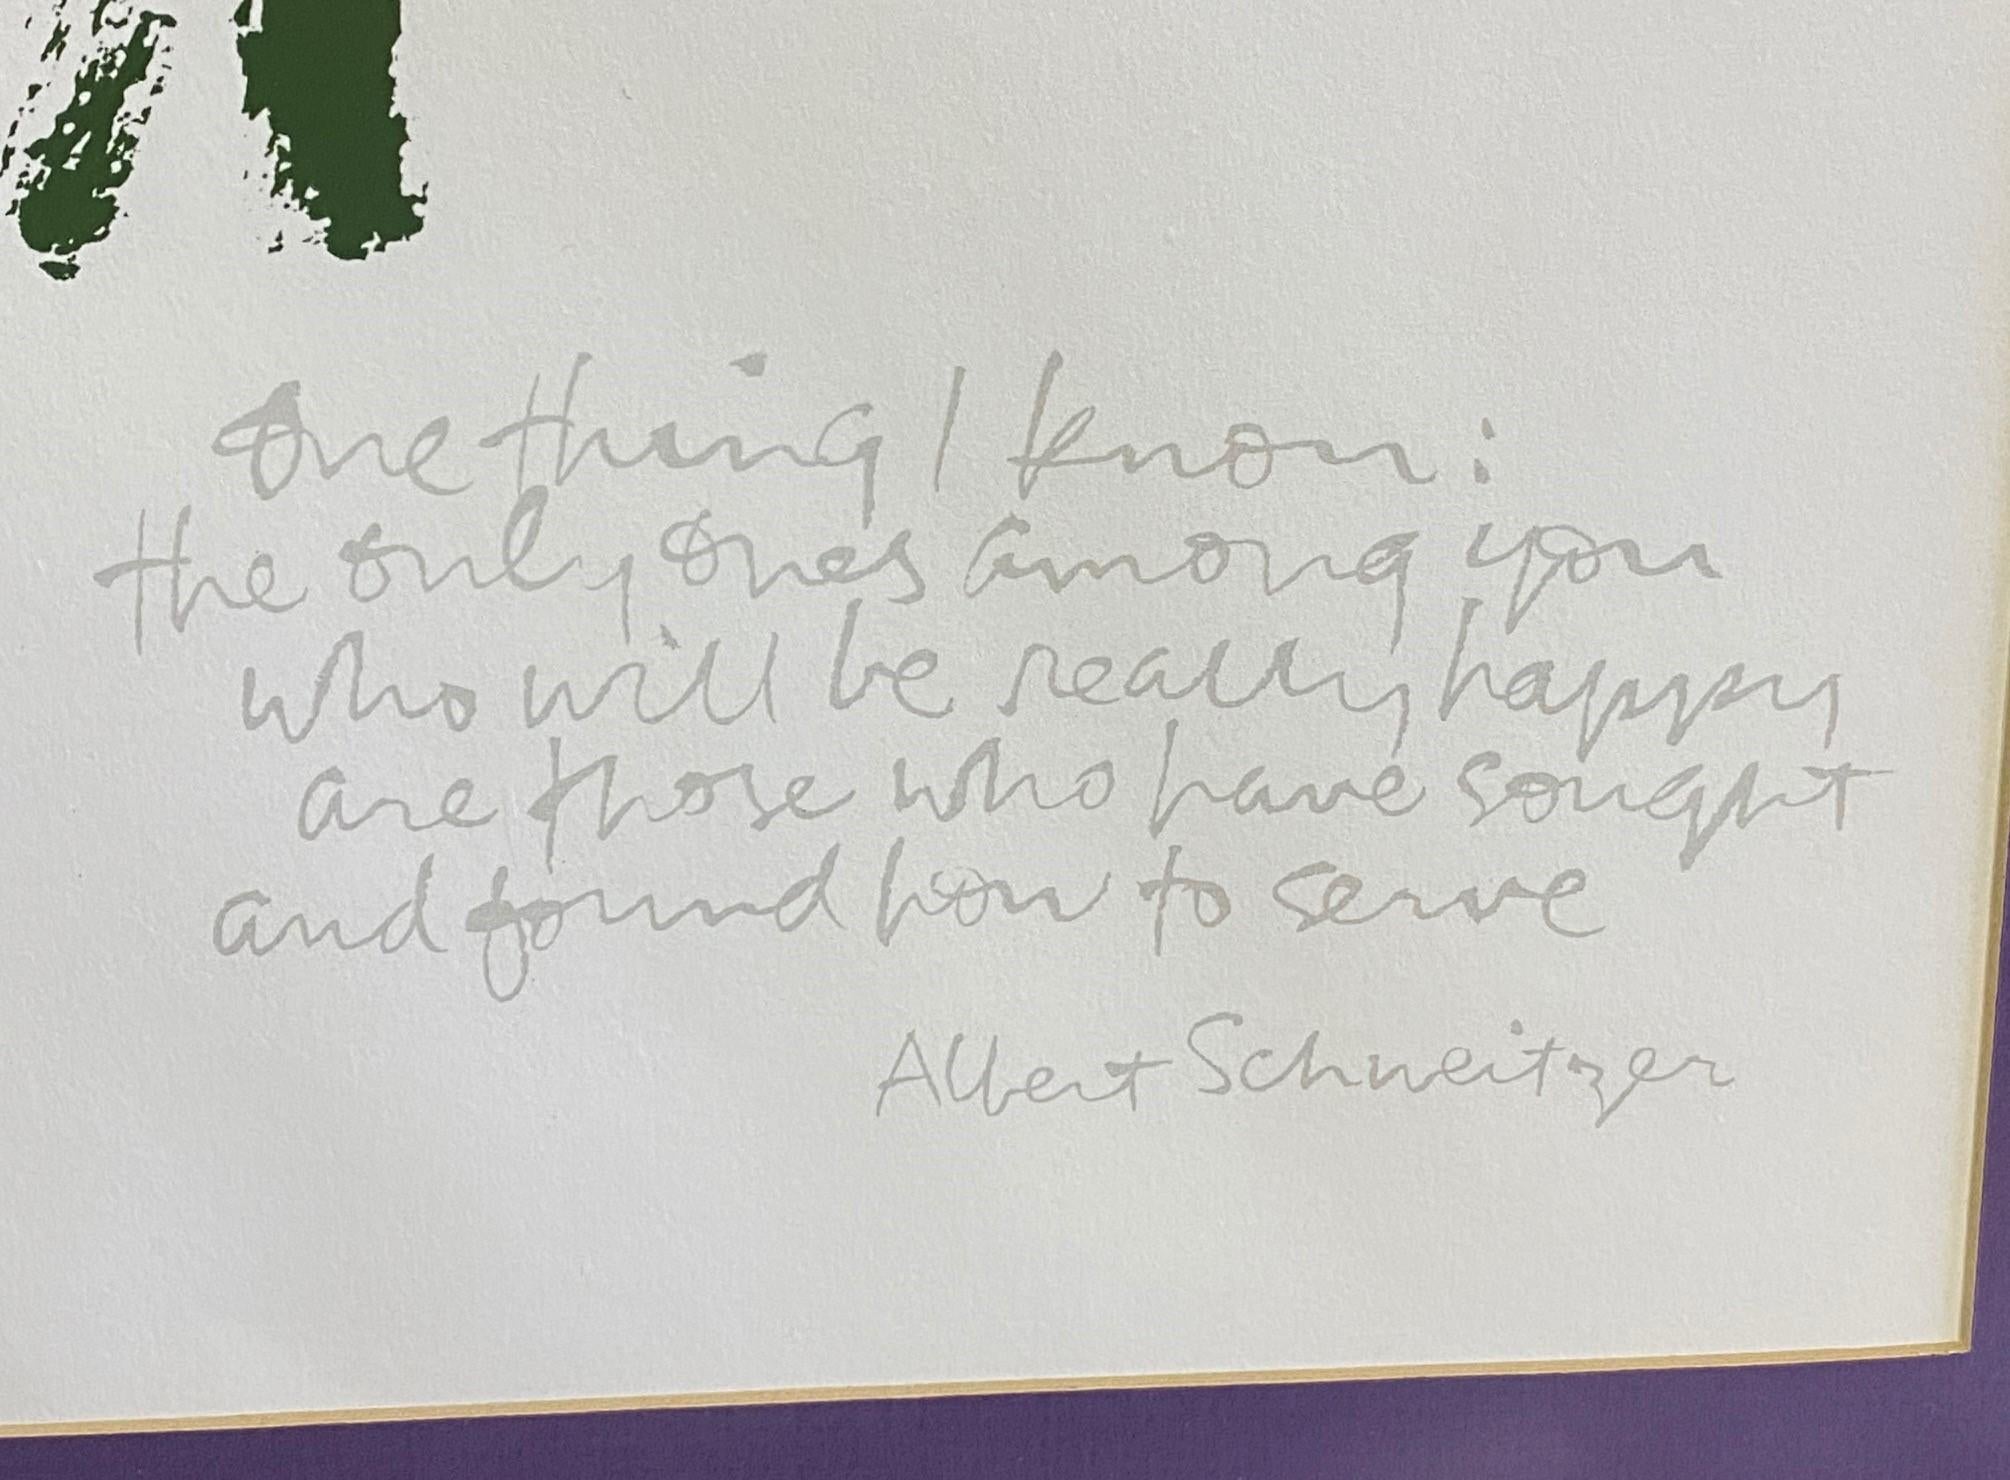 One thing I know:
the only ones among you
who will be really happy
are those who have sought
and found how to serve
Albert Schweitzer